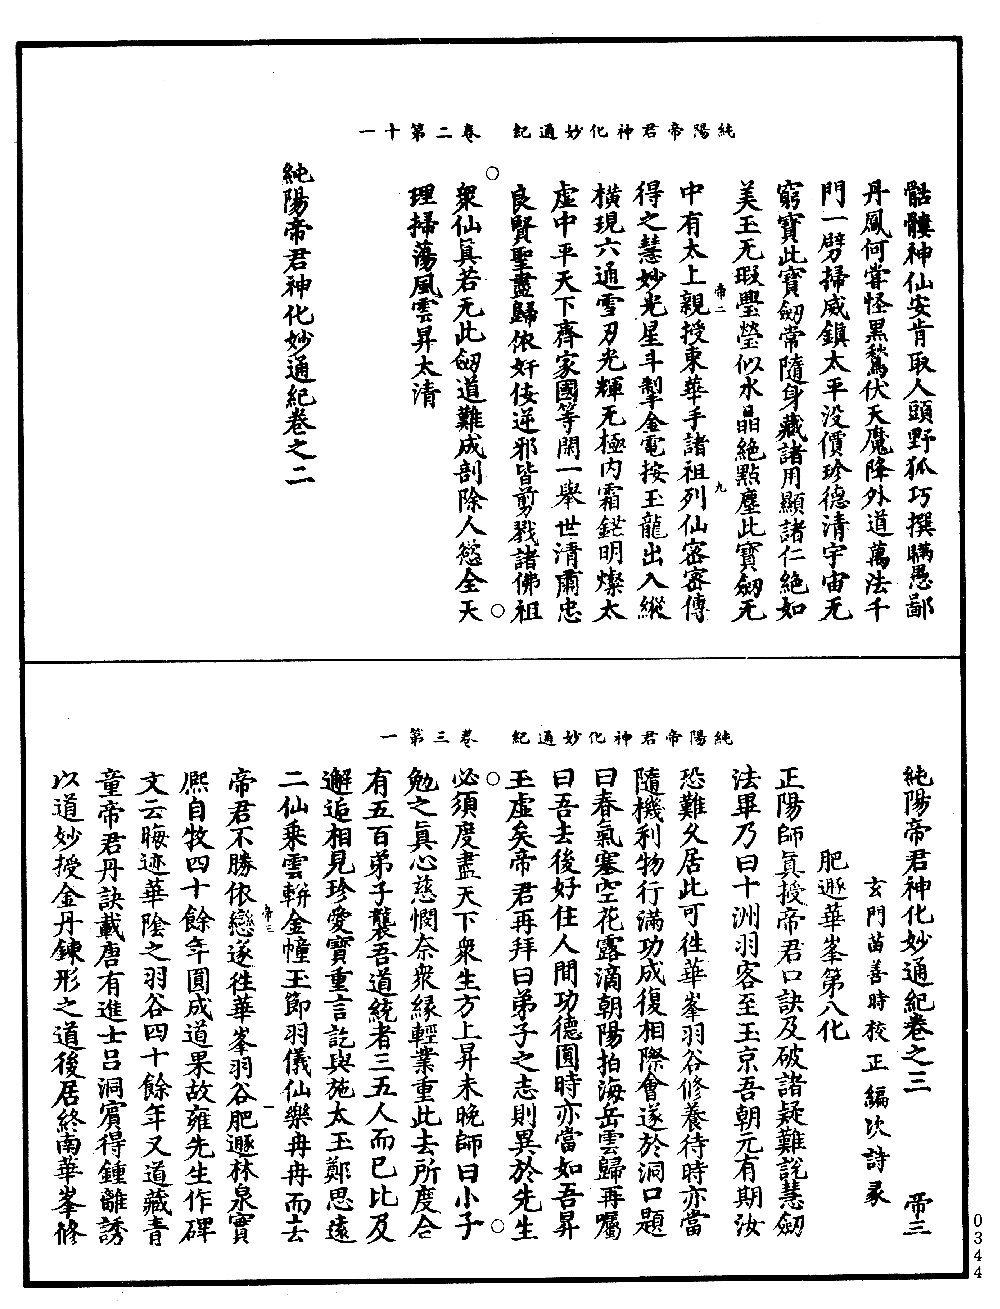 純陽帝君神化妙通紀　卷二第十一
骷髏神仙安肯取人頭野狐巧撰瞞愚鄙
丹鳳何嘗怪黑鶖伏天魔降外道萬法千
門一劈掃威鎮太平没價珍德清宇宙无
窮寶此寶劒常隨身藏諸用顯諸仁絶如
美玉无瑕璺瑩似水晶絶點塵此寶劒无
帝二
九
中有太上親授東華手諸祖列仙密密傳
得之慧妙光星斗掣金電按玉龍出入縱
橫現六通雪刃光輝无極内霜鋩明燦太
虛中平天下齊家國等閑一舉世清肅忠
良賢聖盡歸依奸佞逆邪皆剪戮諸佛祖
衆仙真若无此劒道難成剖除人慾全天
理掃蕩風雲昇太清
純陽帝君神化妙通紀卷之二
純陽帝君神化妙通紀　卷三第一
純陽帝君神化妙通紀卷之三　帝三
玄門苗善時校正編次詩彖
肥遯華峯第八化
正陽師真授帝君口訣及破諸疑難說慧劒
法畢乃曰十洲羽客至玉京吾朝元有期汝
恐難久居此可徃華峯羽谷修養待時亦當
隨機利物行滿功成復相際會遂於洞口題
曰春氣塞空花露滴朝陽拍海岳雲歸再囑
曰吾去後好住人間功德圓時亦當如吾昇
玉虛矣帝君再拜曰弟子之志則異於先生
必須度盡天下衆生方上昇未晚師曰小子
勉之真心慈憫奈衆緣輕業重此去所度合
有五百弟子襲吾道統者三五人而已比及
邂逅相見珍愛寶重言訖與施太玉鄭思遠
二仙乘雲軿金幢玉節羽儀仙樂冉冉而去
帝三
一
帝君不勝依戀遂徃華峯羽谷肥遯林泉寶
熈自牧四十餘年圓成道果故雍先生作碑
文云晦迹華陰之羽谷四十餘年又道藏青
童帝君丹訣載唐有進士吕洞賔得鍾離誘
以道妙授金丹鍊形之道後居終南華峯修
0344